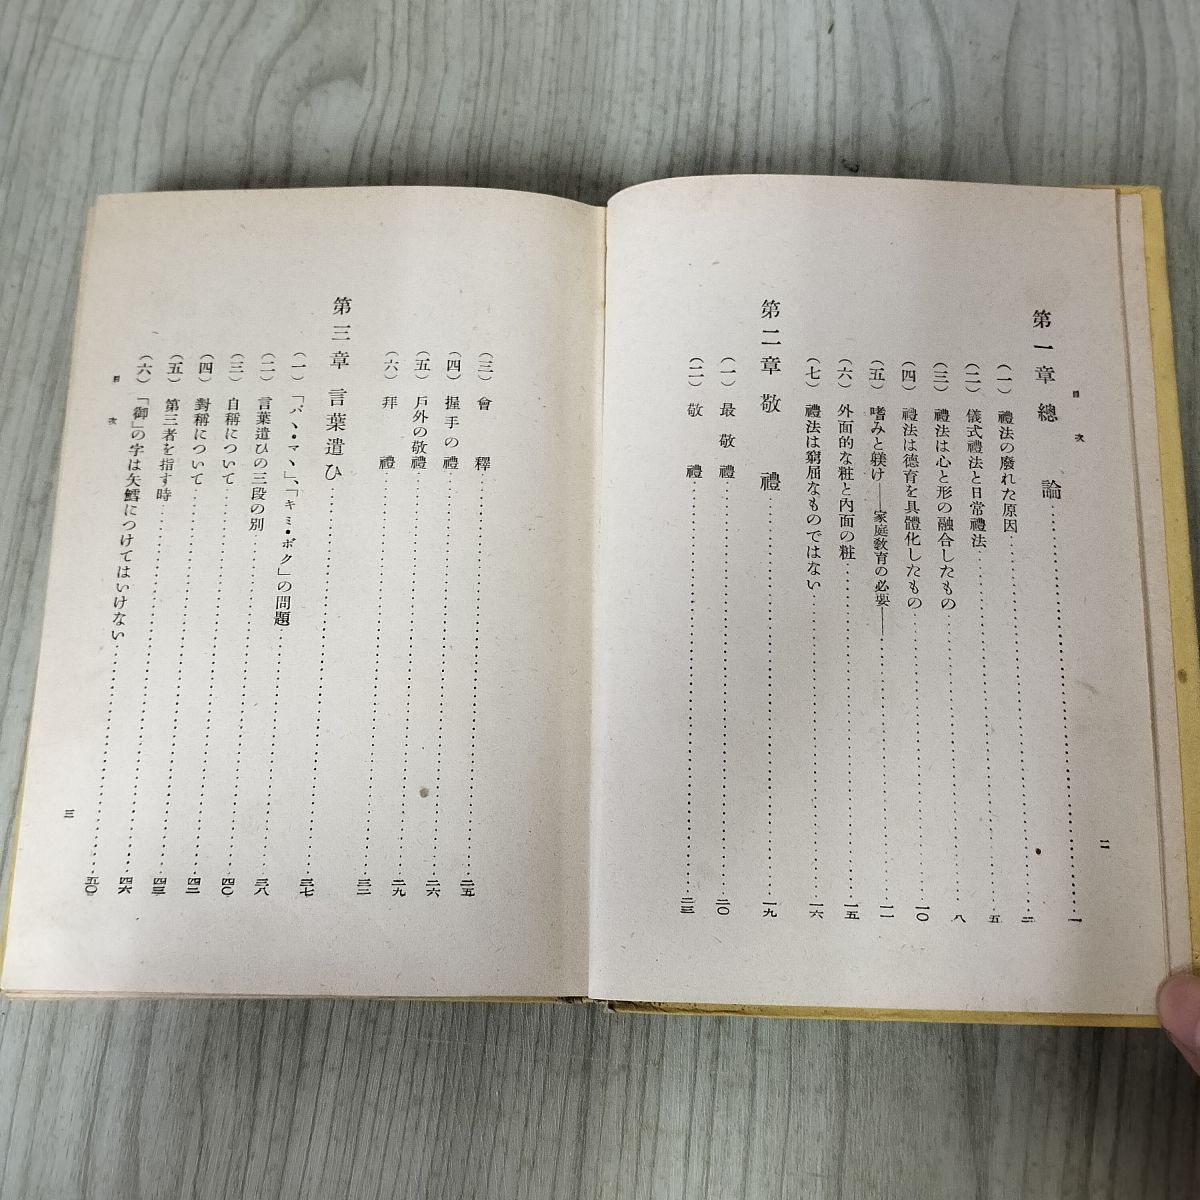 目次
二
第一章 總論……一
（一）禮法の廢れた原因……二
（二）儀式禮法と日常禮法……五
（三）禮法は心と形の融合したもの……八
（四）禮法は德育を具體化したもの……一〇
（五）嗜みと躾け――家庭敎育の必要――……一一
（六）外面的な粧と內面の粧……一五
（七）禮法は窮屈なものではない……一六
第二章 敬禮……一九
（一）最敬禮……二〇
（二）敬禮……二三
（三）會釋……二五
（四）握手の禮……二六
（五）戶外の敬禮……二九
（六）拜禮……三二
第三章 言葉遣ひ……三七
（一）「パヽ・マヽ」、「キミ・ボク」の問題……三八
（二）言葉遣ひの三段の別……四〇
（三）自稱について……四二
（四）對稱について……四三
（五）第三者を指す時……四六
（六）「御」の字は矢鱈につけてはいけない……五〇
目次
三